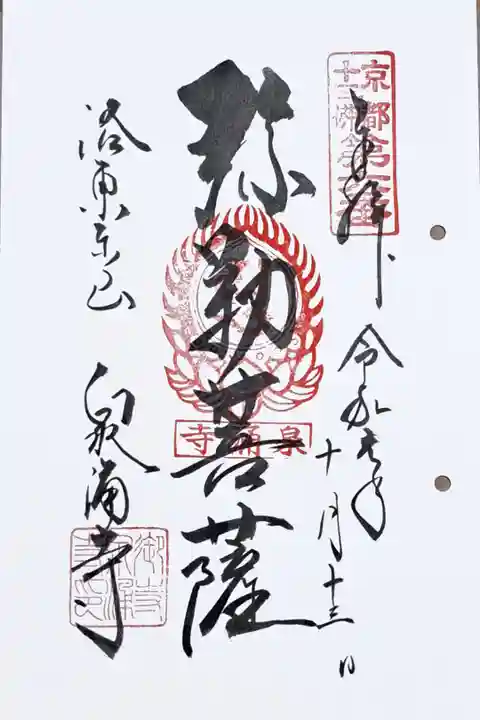 京都
十三佛霊場
奉拝
令和
十月十三日
弥勒菩薩
泉涌寺
洛東東山 泉涌寺
御寺